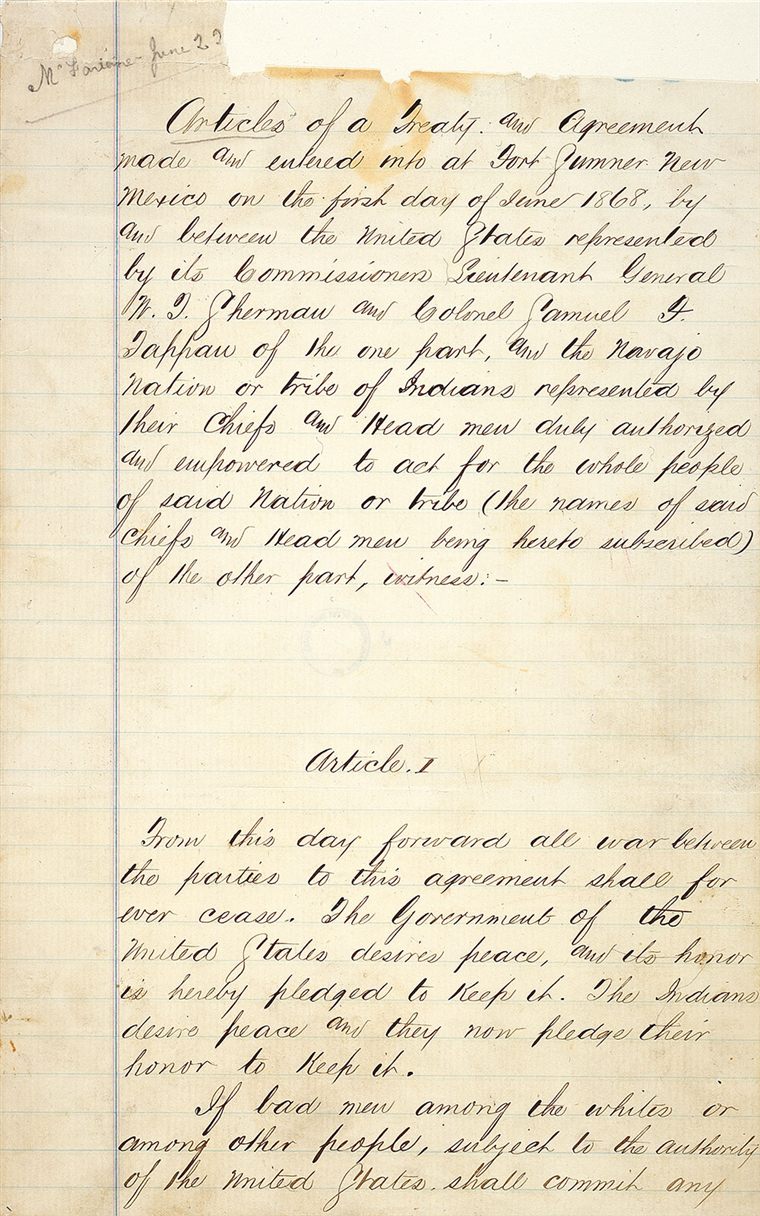 McFarlane - June 23
Articles of a Treaty and Agreement
made and entered into at Fort Sumner New
Mexico on the first day of June 1868, by
and between the United States represented
by its Commissioners Lieutenant General
W. T. Sherman and Colonel Samuel F.
Tappan of the one part, and the Navajo
Nation or tribe of Indians represented by
their Chiefs and Head men duly authorized
and empowered to act for the whole people
of said Nation or tribe (the names of said
Chiefs and Head men being hereto subscribed)
of the other part, witness:-
Article. I
From this day forward all war between
the parties to this agreement shall for
ever cease. The Government of the
United States desires peace, and its honor
is hereby pledged to keep it. The Indians
desire peace and they now pledge their
honor to keep it.
If bad men among the whites or
among other people, subject to the authority
of the United States shall commit any